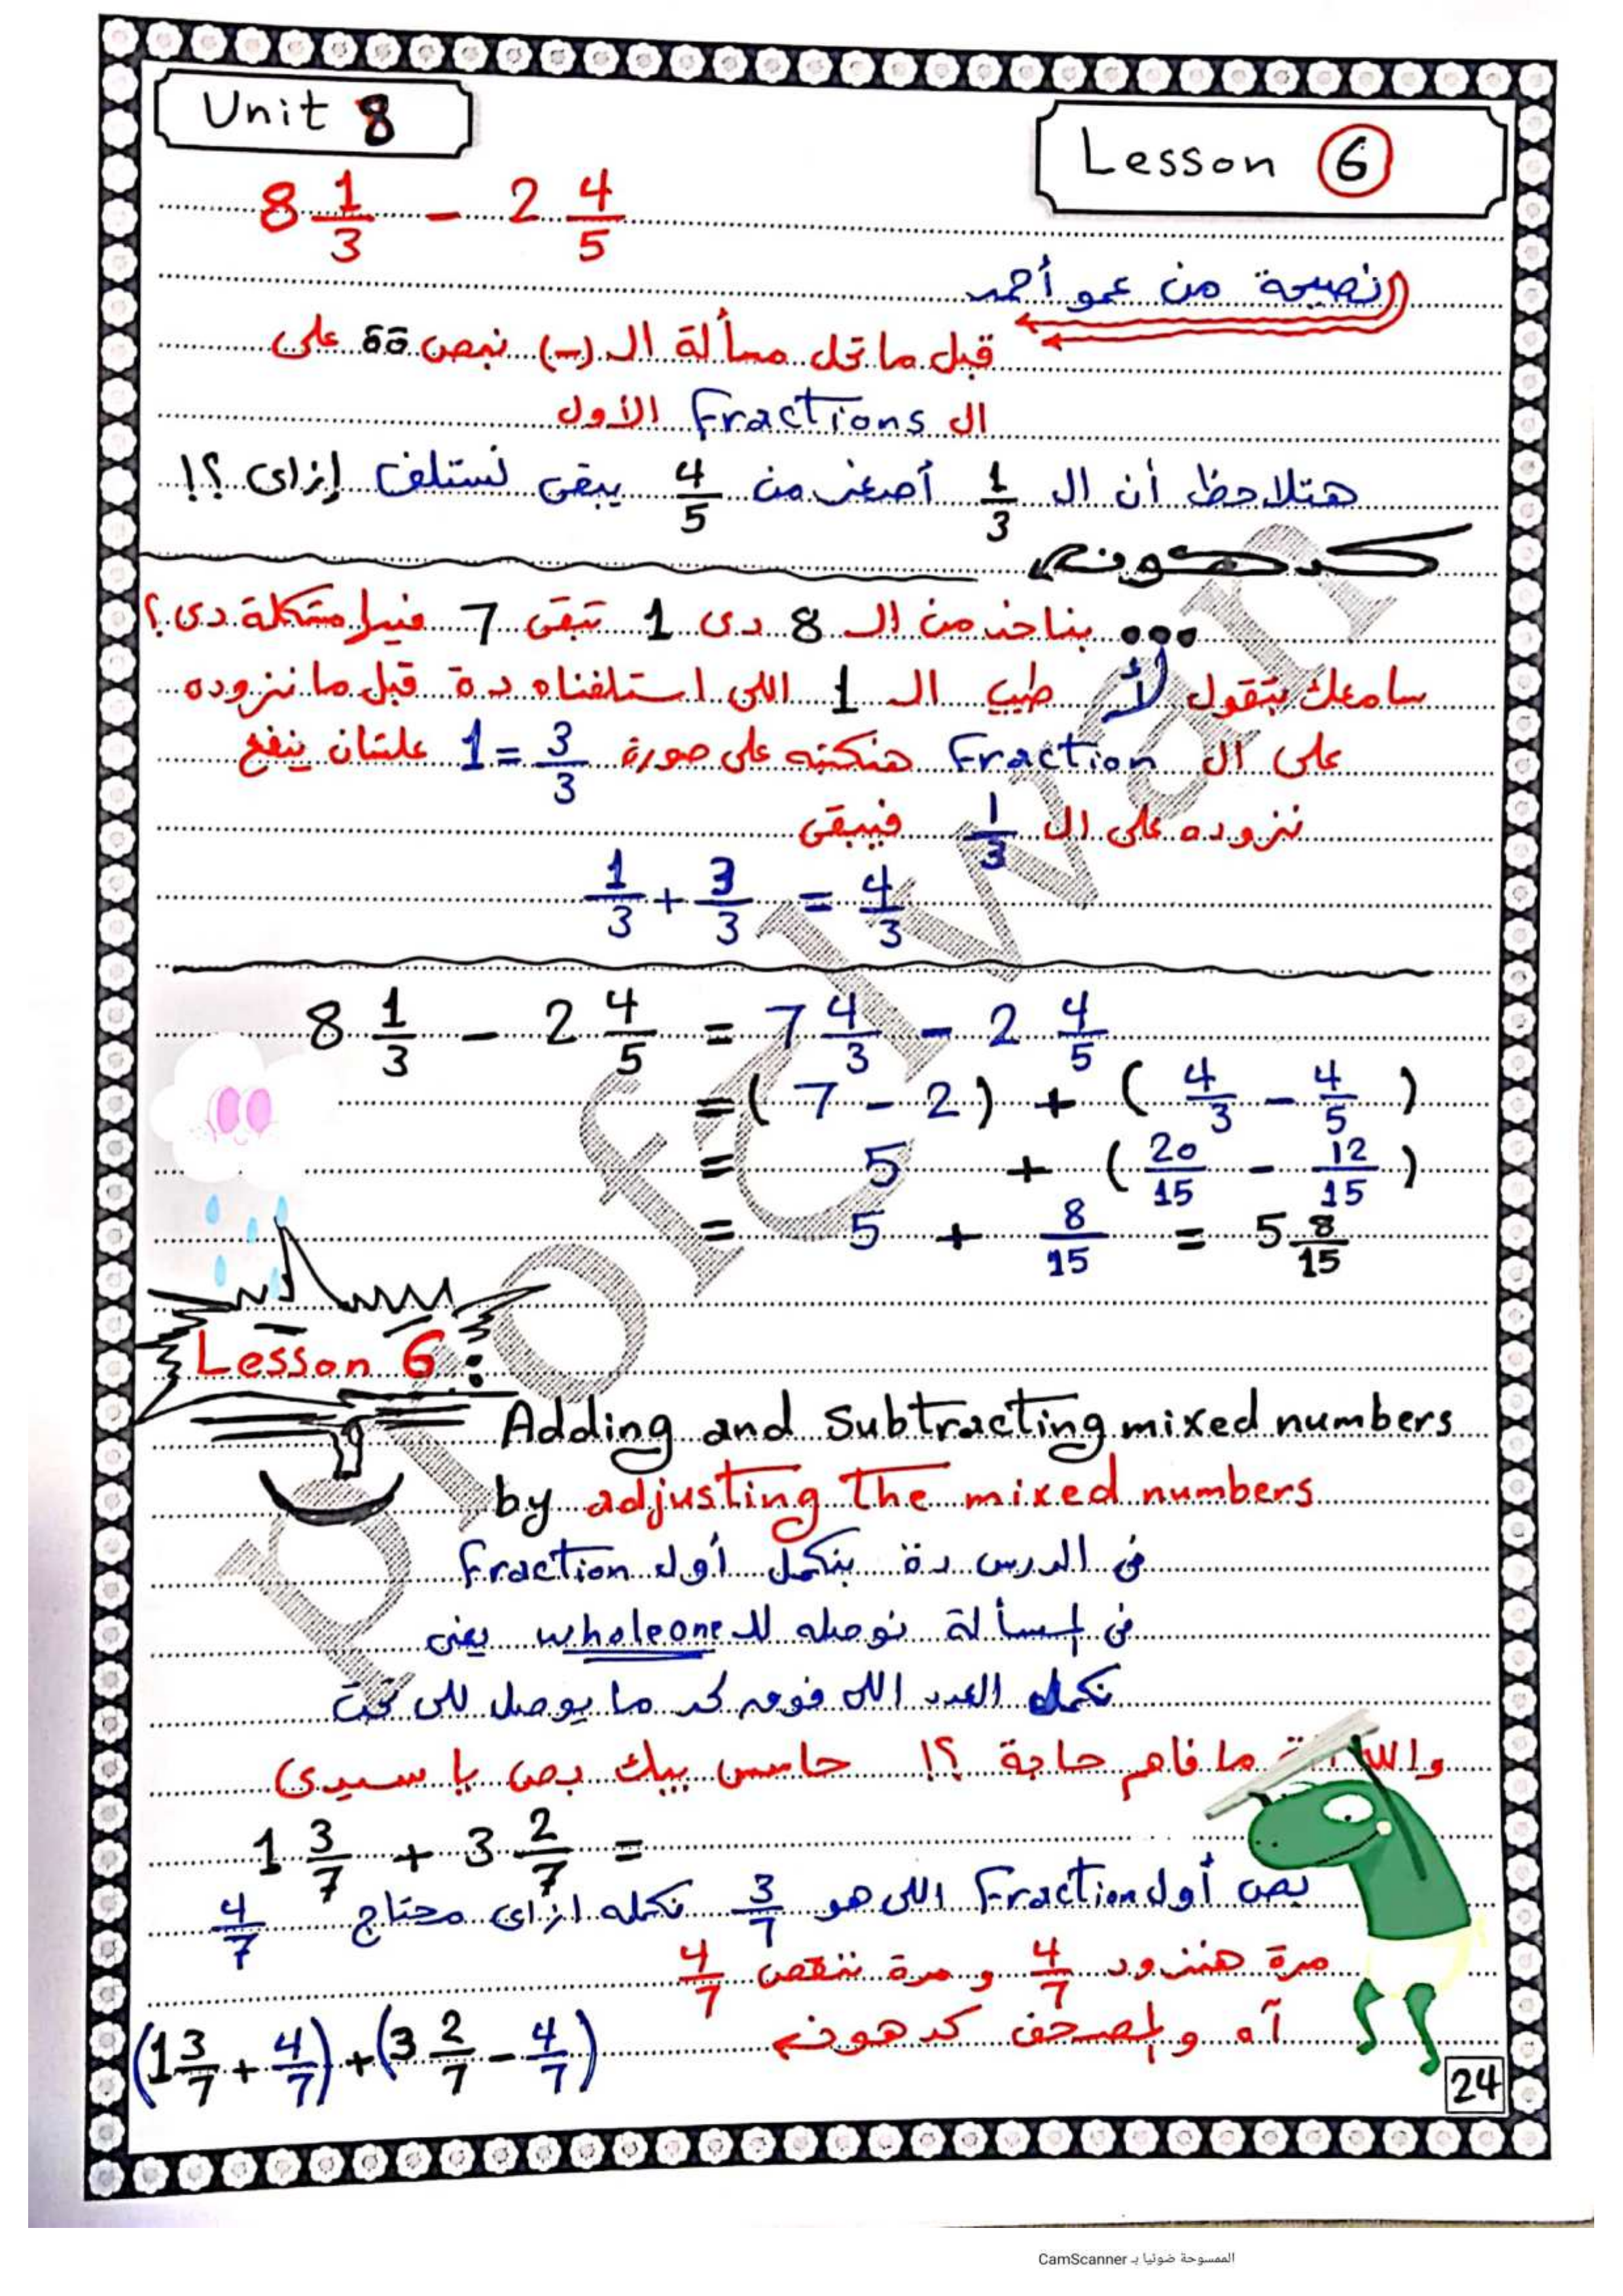 Unit 8
Lesson 6
8 1/3 - 2 4/5
نصيحة من عمو أحمد
قبل ما تحل مسألة ال (-) نبص على
ال Fractions الأول
هتلاحظ أن ال 1/3 أصغر من 4/5 يبقى نستلف إزاى ؟!
كدهونه
... بناخد من ال 8 دى 1 تبقى 7 فيها مشكلة دى ؟
سامعك بتقول لأ طيب ال 1 اللى استلفناه دة قبل ما نزوده
على ال Fraction هنكتبه على صورة 3/3 = 1 علشان ينفع
نزوده على ال 1/3 فيبقى
1/3 + 3/3 = 4/3
8 1/3 - 2 4/5 = 7 4/3 - 2 4/5
= (7 - 2) + (4/3 - 4/5)
= 5 + (20/15 - 12/15)
= 5 + 8/15 = 5 8/15
Lesson 6 :
Adding and Subtracting mixed numbers
by adjusting The mixed numbers
فى الدرس دة بنكمل أول Fraction
فى المسألة نوصله لل whole one يعنى
نكمل العدد اللى فوق لحد ما يوصل للى تحت
والله ما فاهم حاجة ؟! حاسس بيك بص يا سيدى
1 3/7 + 3 2/7 =
بص أول Fraction اللى هو 3/7 نكمله ازاى محتاج 4/7
مرة هنزود 4/7 و مرة ننقص 4/7
آه والمصحف كدهونه
(1 3/7 + 4/7) + (3 2/7 - 4/7)
24
Prof Q Nagi
الممسوحة ضوئيا بـ CamScanner